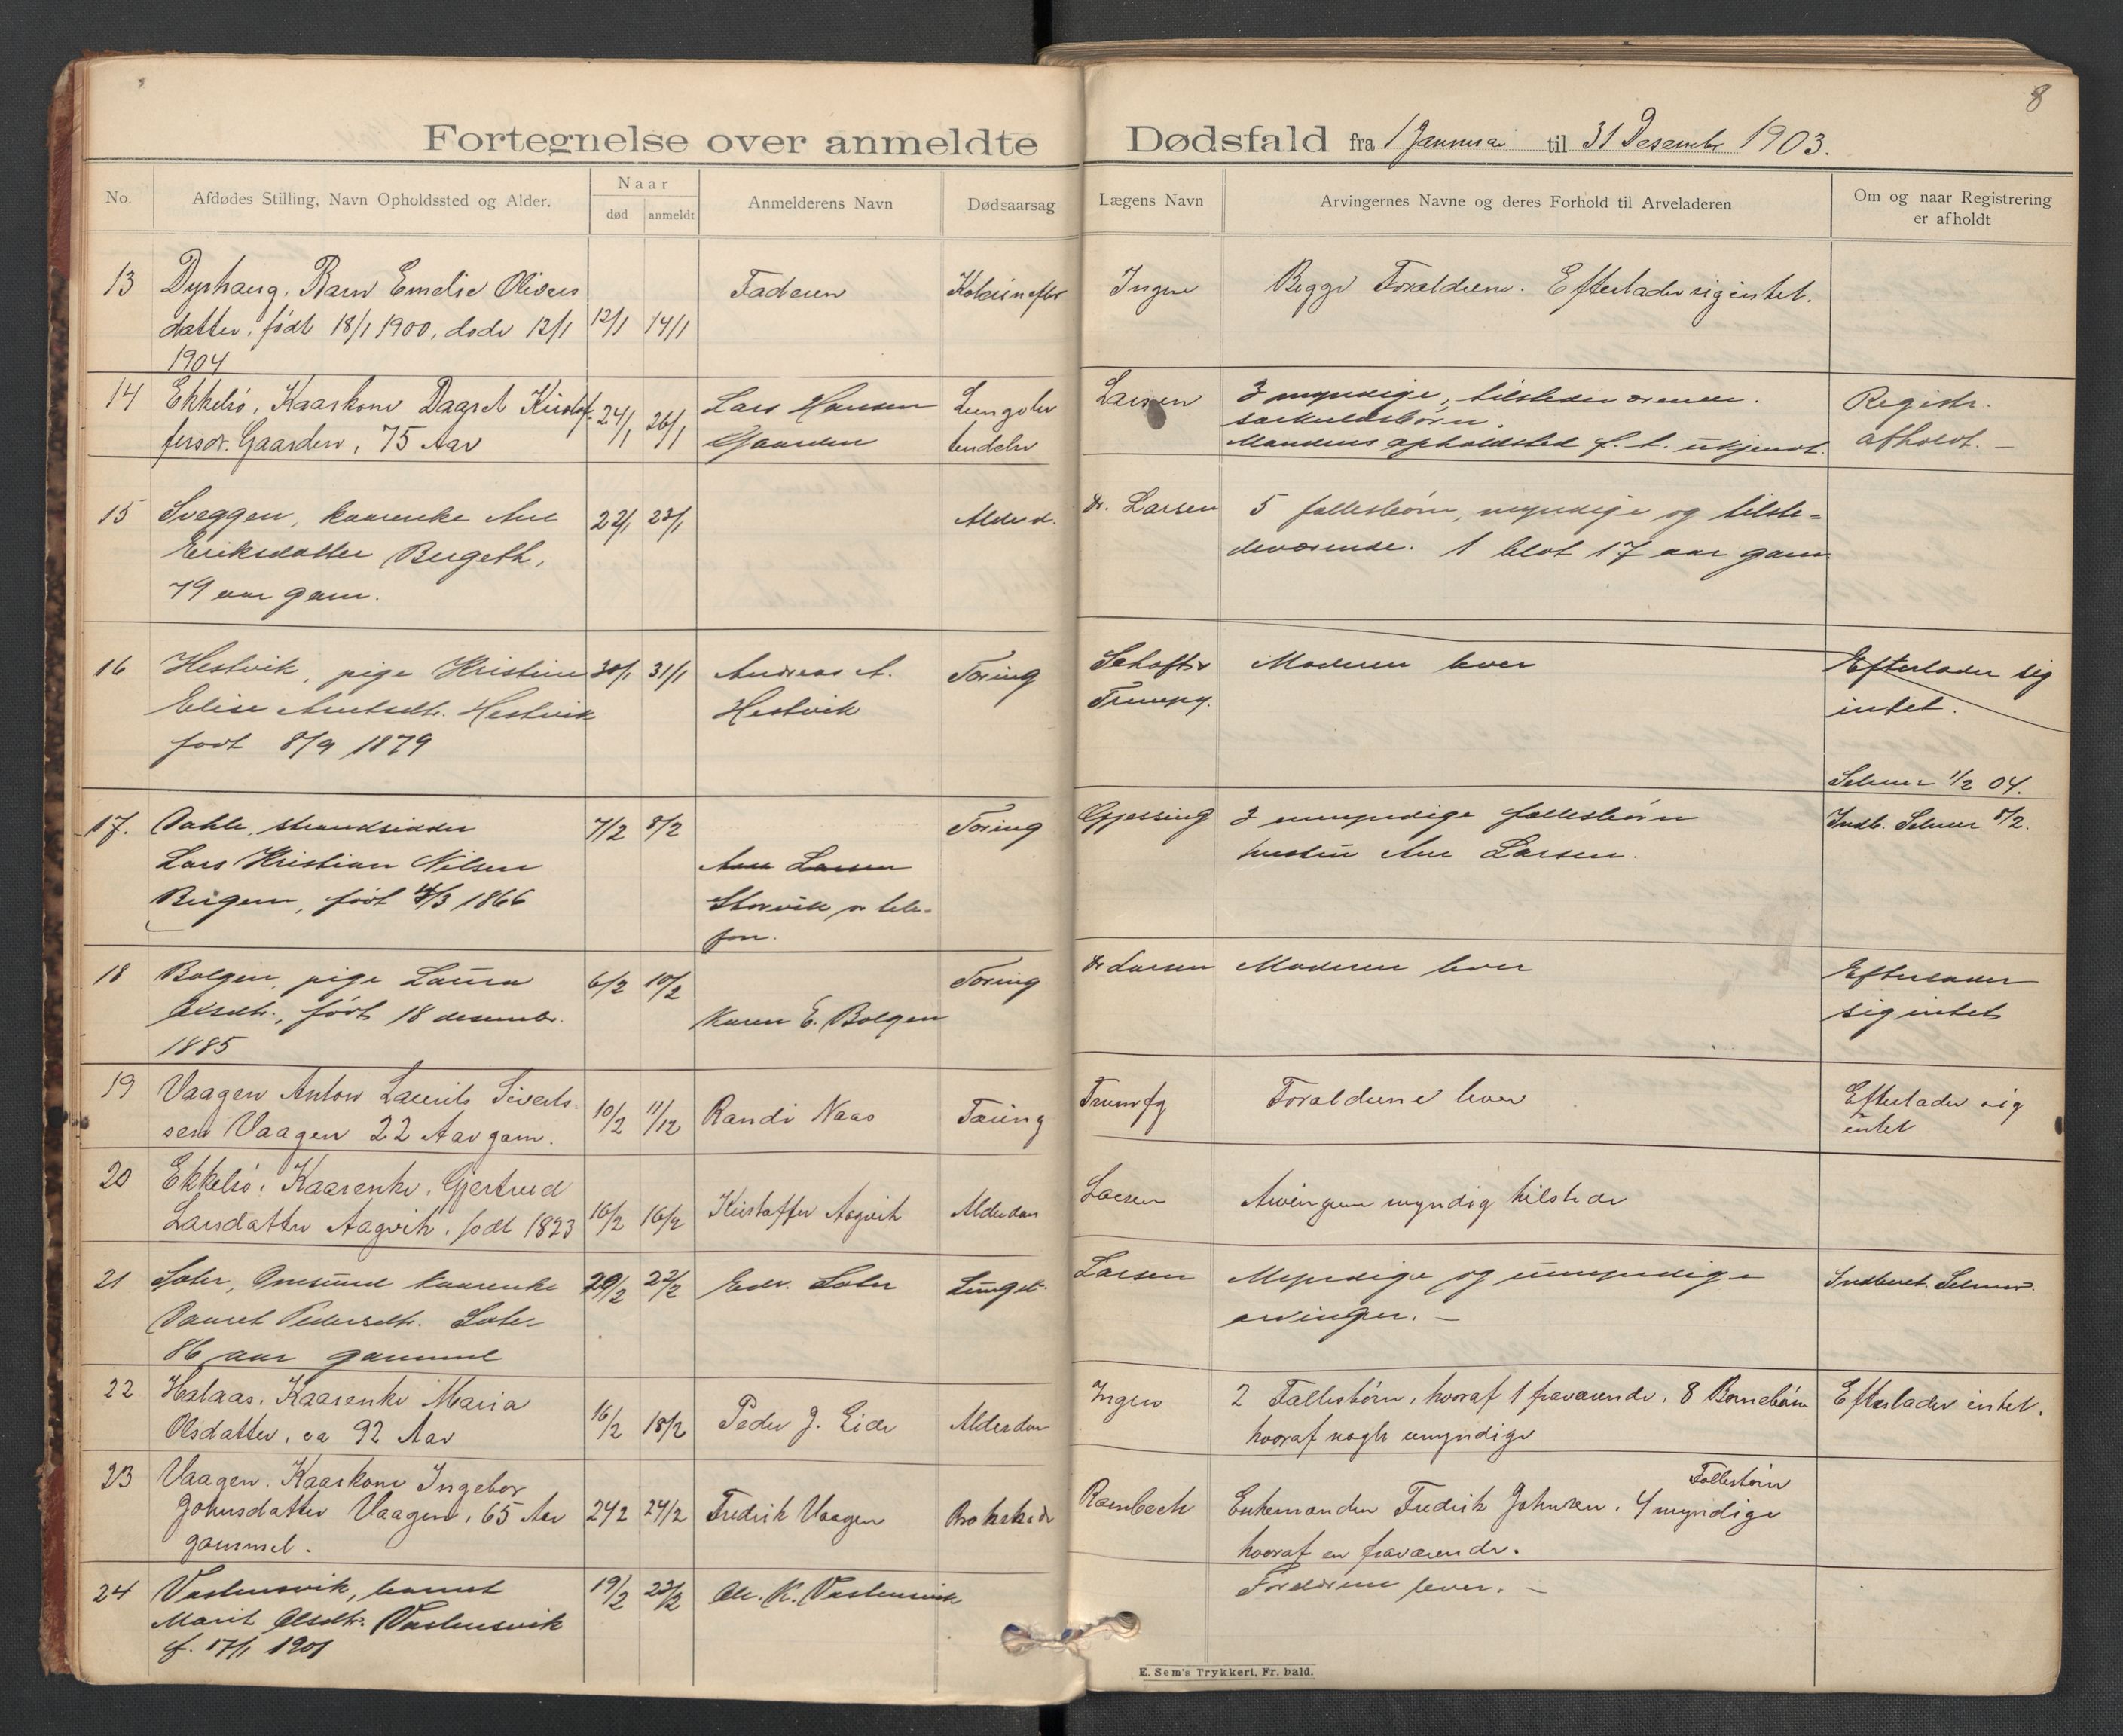 8
Fortegnelse over anmeldte Dødsfald fra 1 Januar til 31 Desember 1903.
No. Afdødes Stilling, Navn Opholdssted og Alder. Naar død anmeldt Anmelderens Navn Dødsaarsag Lægens Navn Arvingernes Navne og deres Forhold til Arveladeren Om og naar Registrering er afholdt
13 Dyrhaug. Barn Emelie Olivers Faderen Ingen Begge Forældrene. Efterlader sig intet.
datter, født 18/1 1900, døde 12/1 12/1 14/1
1904
14 Ekkelsö, Kaarkone Daaret Kristof- 24/1 26/1 Lars Hansen Lungebe Larsen 3 myndige, tilstedeværende. Registr.
fersdr. Gaarden, 75 Aar Gaarden tendelse særkuldsbørn. afholdt. —
Mandens opholdsted f. t. ukjendt.
15 Sveggen, kaarenke Ane 22/1 23/1 Alderd. Dr. Larsen 5 fællesbørn, myndige og tilste=
Eriksdatter Bergeth, deværende. 1 blot 17 aar gam
79 aar gam.
16 Hestvik, pige Kristine 30/1 31/1 Andreas A. Tæring Moderen lever Efterlader sig
Elise Hestvik Hestvik intet.
født 8/9 1879
Selmer 1/2 04.
17. Dahle, strandsidder 7/2 8/2 Tæring Gjessing 3 umyndige fællesbørn Indb. Selmer 8/2.
Lars Kristian Nilsen Ane Larsen hustru Ane Larsen.
født 4/3 1866 Storvik pr tele-
fon.
18 Bolgen, pige Laura 6/2 10/2 Tæring Dr Larsen Moderen lever Efterlader
Olsdtr., født 18 desembr. Karen E. Bolgen sig intet
1885
19 Vaagen Anton Laurits Siverts- 10/2 11/12 Randi Naas Tæring Forældrene lever Efterlader sig
sen Vaagen 22 Aar gam. intet
20 Ekkelsö, Kaarenke, Gjertrud 16/2 16/2 Kristoffer Aagvik Alderdom Larsen Arvingerne myndig tilstede
Larsdatter Aagvik, født 1823
21 Sæter, Omsund kaarenke 20/2 22/2 Edv. Sæter Lunget. Larsen Myndige og umyndige Indberet. Selmer.
Daaret Pedersdtr. Sæter arvinger. —
86 aar gammel
22 Halaas. Kaarenke Maria 16/2 18/2 Peder J. Eide Alderdom Ingen 2 Fællesbørn, hvoraf 1 fraværende, 8 Børnebørn Efterlader intet.
Olsdatter, ca 92 Aar hvoraf nogle umyndige
23 Vaagen. Kaarkone Ingebor 24/2 24/2 Fredrik Vaagen Brokskade Enkemanden Fredrik Johnsen. 4 myndige Fællesbørn
Johnsdatter Vaagen, 65 Aar hvoraf en fraværende.
gammel.
24 Vasleusvik, barnet 19/2 23/2 Ole. K. Vasleusvik Forældrene lever. —
Marit Olsdtr. Vasleusvik
f. 17/1 1901
E. Sem's Trykkeri, Fr. hald.